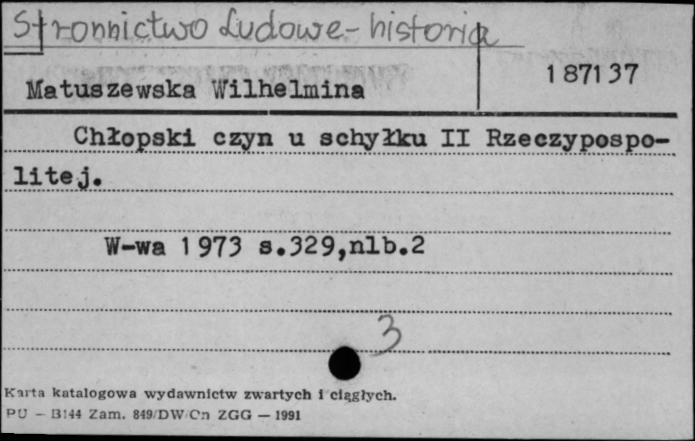 Stronnictwo Ludowe - historia
187137
Matuszewska Wilhelmina
Chłopski czyn u schyłku II Rzeczypospo-
litej.
W-wa 1973 s.329,nlb.2
3
Karta katalogowa wydawnictw zwartych i ciągłych.
PU — B144 Zam. 849/DW/Cn ZGG — 1991